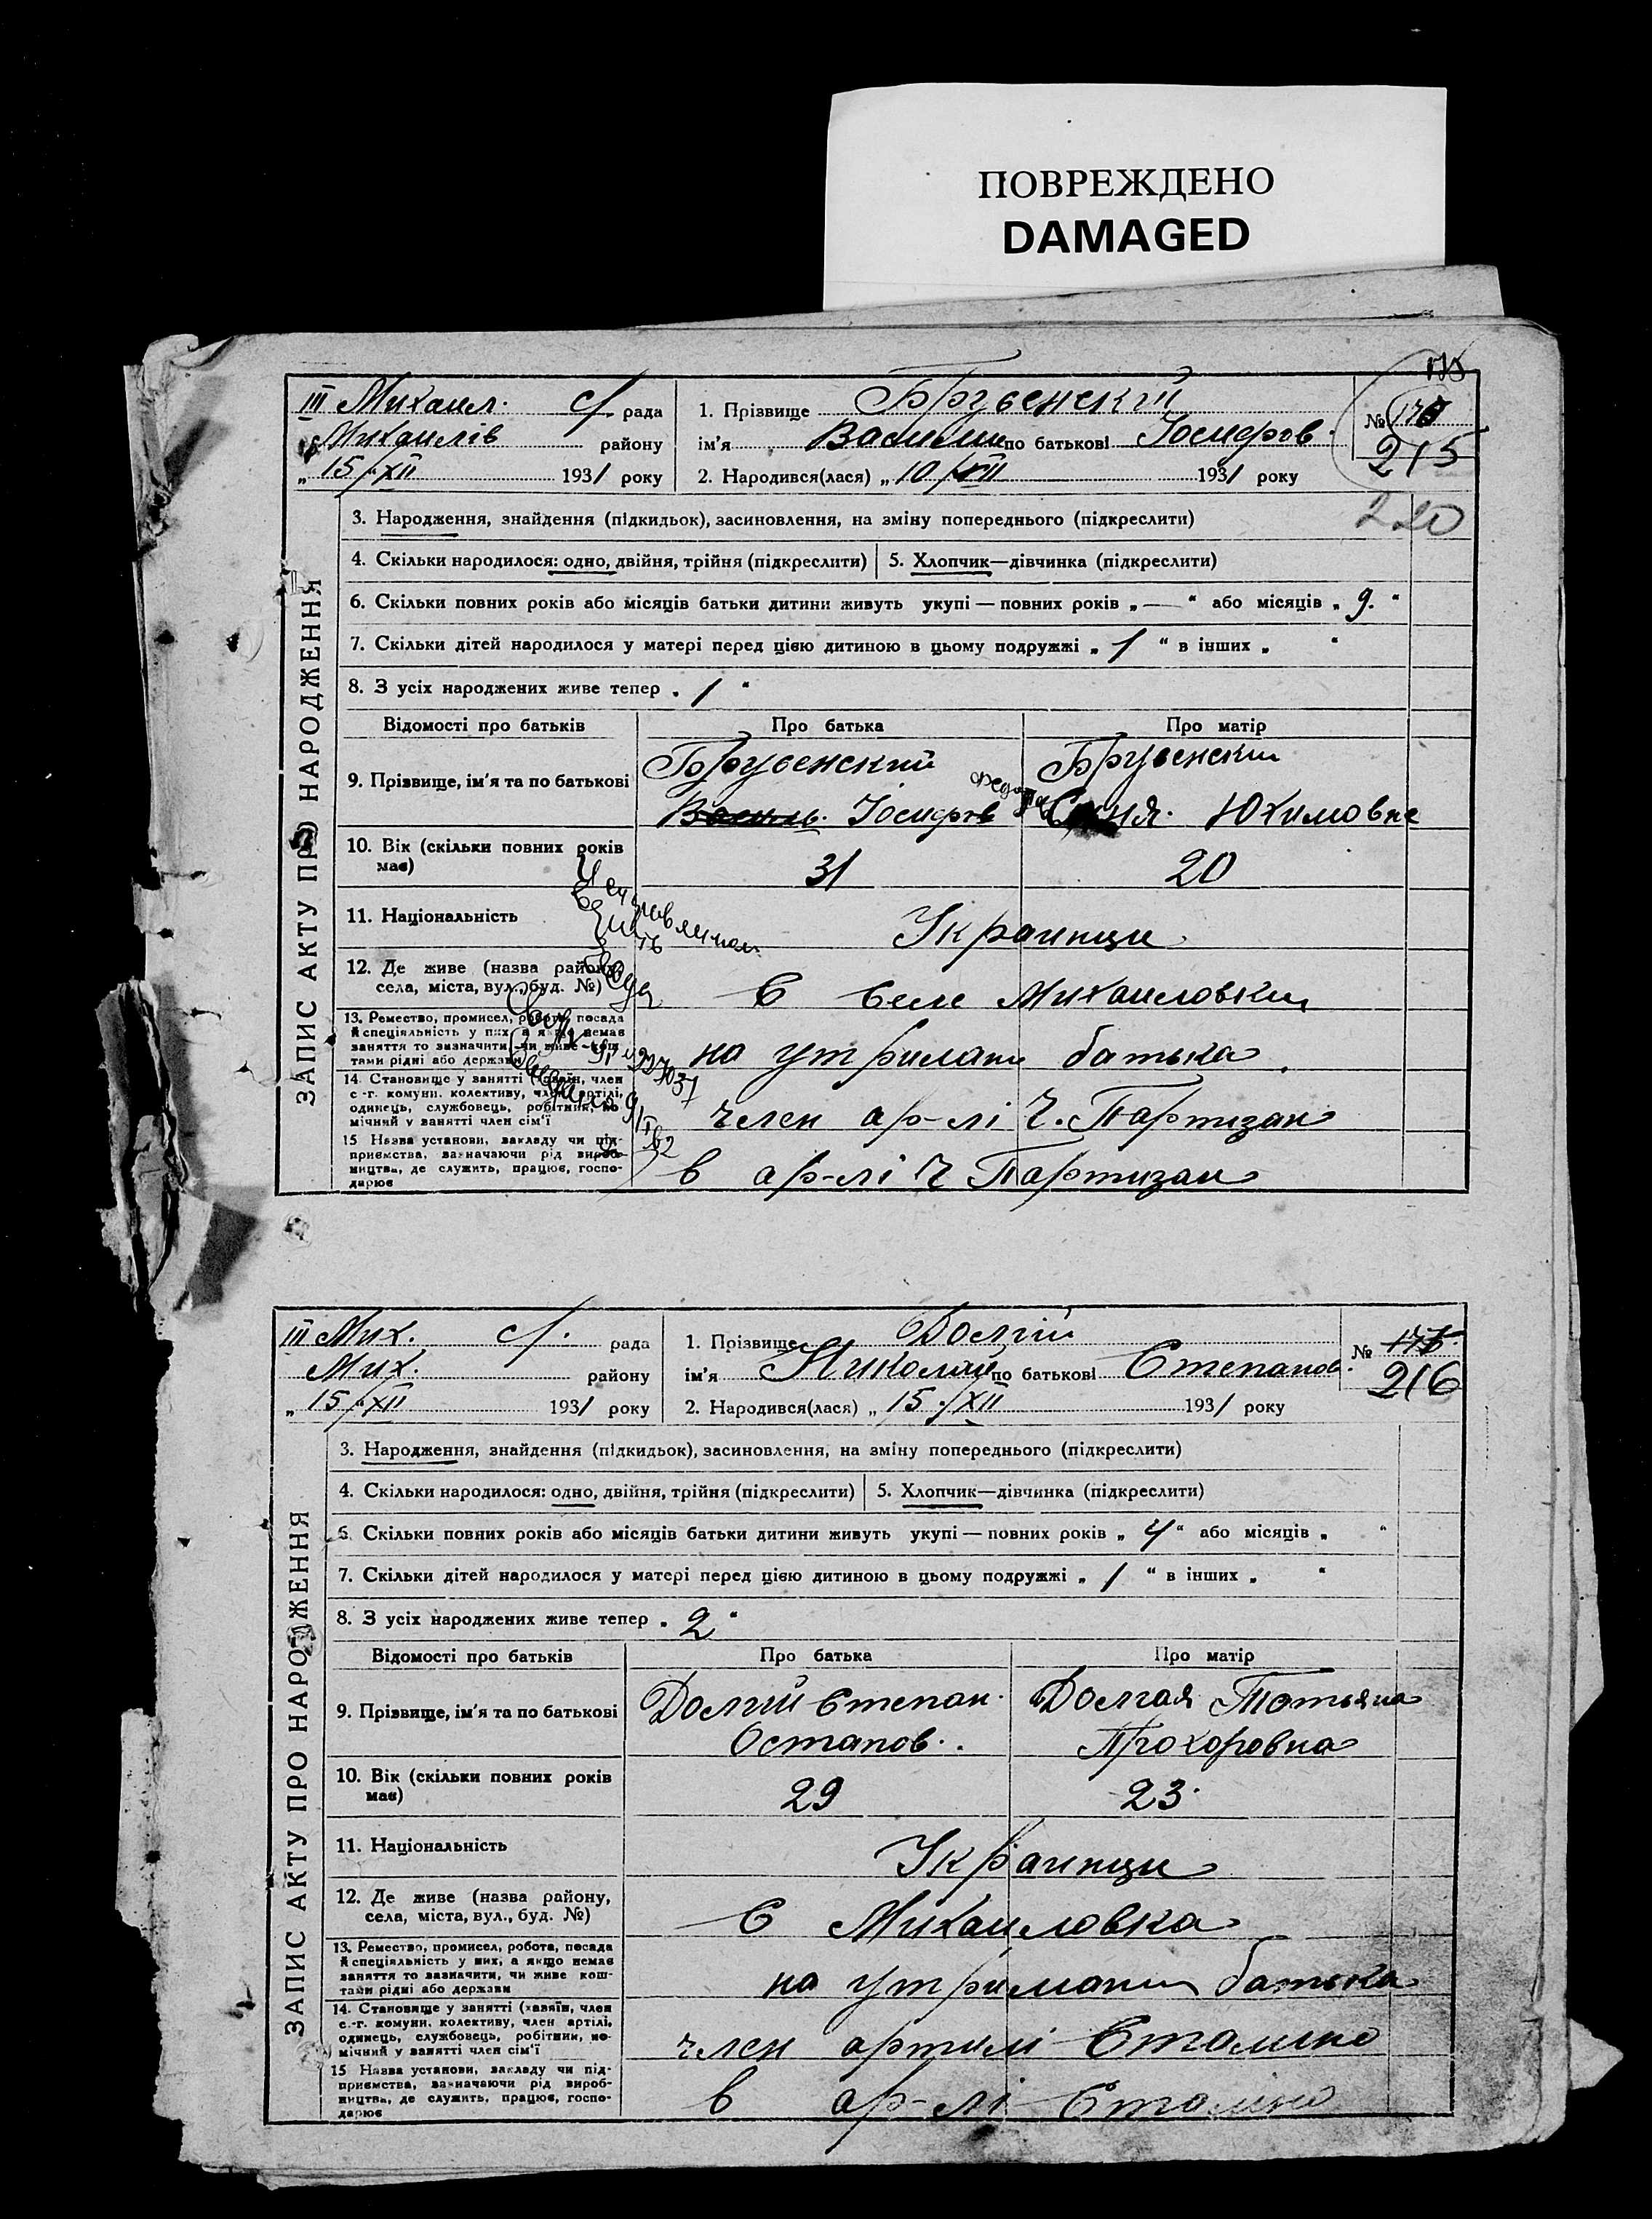 ПОВРЕЖДЕНО
DAMAGED
ЗАПИС АКТУ ПРО НАРОДЖЕННЯ
III Михаил. с/ рада
Михаилів району
„ 15/XII 1931 року
1. Прізвище Брувенский
ім'я Василий по батькові Іосифов.
2. Народився(лася) „ 10/XII 1931 року
№
215
220
3. Народження, знайдення (підкидьок), засиновлення, на зміну попереднього (підкреслити)
4. Скільки народилося: одно, двійня, трійня (підкреслити) 5. Хлопчик—дівчинка (підкреслити)
6. Скільки повних років або місяців батьки дитини живуть укупі — повних років „ — “ або місяців „ 9. “
7. Скільки дітей народилося у матері перед цією дитиною в цьому подружжі „ 1 “ в інших „ “
8. З усіх народжених живе тепер „ 1 “
Відомості про батьків Про батька Про матір
9. Прізвище, ім'я та по батькові
Брувенский Брувенски
Василь. Іосифов Юхимовна
10. Вік (скільки повних років має) 31 20
11. Національність Украинци
12. Де живе (назва району, села, міста, вул., буд. №) В селе Михаиловки
13. Ремество, промисел, робота, посада
й спеціяльність у них, а якщо немає
заняття то зазначити, чи живе кош-
тами рідні або держави
на утримани батька
14. Становище у занятті (хазяїн, член
с.-г. комуни, колективу, член артілі,
одинець, службовець, робітник, по-
мічний у занятті член сім'ї
член ар-лі Ч. Партизан
15 Назва установи, закладу чи під-
приємства, зазначаючи рід вироб-
ництва, де служить, працює, госпо-
дарює
в ар-лі Ч Партизан
ЗАПИС АКТУ ПРО НАРОДЖЕННЯ
III Мих. с/. рада
Мих. району
„ 15/XII 1931 року
1. Прізвище Долгій
ім'я Николай по батькові Степанов.
2. Народився(лася) „ 15/XII 1931 року
№
216
3. Народження, знайдення (підкидьок), засиновлення, на зміну попереднього (підкреслити)
4. Скільки народилося: одно, двійня, трійня (підкреслити) 5. Хлопчик—дівчинка (підкреслити)
6. Скільки повних років або місяців батьки дитини живуть укупі — повних років „ 4 “ або місяців „ “
7. Скільки дітей народилося у матері перед цією дитиною в цьому подружжі „ 1 “ в інших „ “
8. З усіх народжених живе тепер „ 2 “
Відомості про батьків Про батька Про матір
9. Прізвище, ім'я та по батькові
Долгий Степан. Долгая Татьяна
Остапов. Прохоровна
10. Вік (скільки повних років має) 29 23
11. Національність Украинци
12. Де живе (назва району, села, міста, вул., буд. №) С Михаиловка
13. Ремество, промисел, робота, посада
й спеціяльність у них, а якщо немає
заняття то зазначити, чи живе кош-
тами рідні або держави
на утримани батька
14. Становище у занятті (хазяїн, член
с.-г. комуни, колективу, член артілі,
одинець, службовець, робітник, по-
мічний у занятті член сім'ї
член артилі Сталина
15 Назва установи, закладу чи під-
приємства, зазначаючи рід вироб-
ництва, де служить, працює, госпо-
дарює
в ар-лі Сталіна